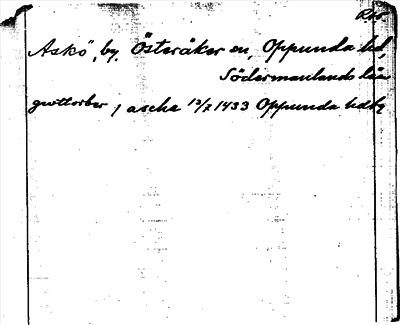 Askö, by, Österåker sn, Oppunda hd,
Södermanlands län
gwttorber j aschæ 13/2 1433 Oppunda hdbg